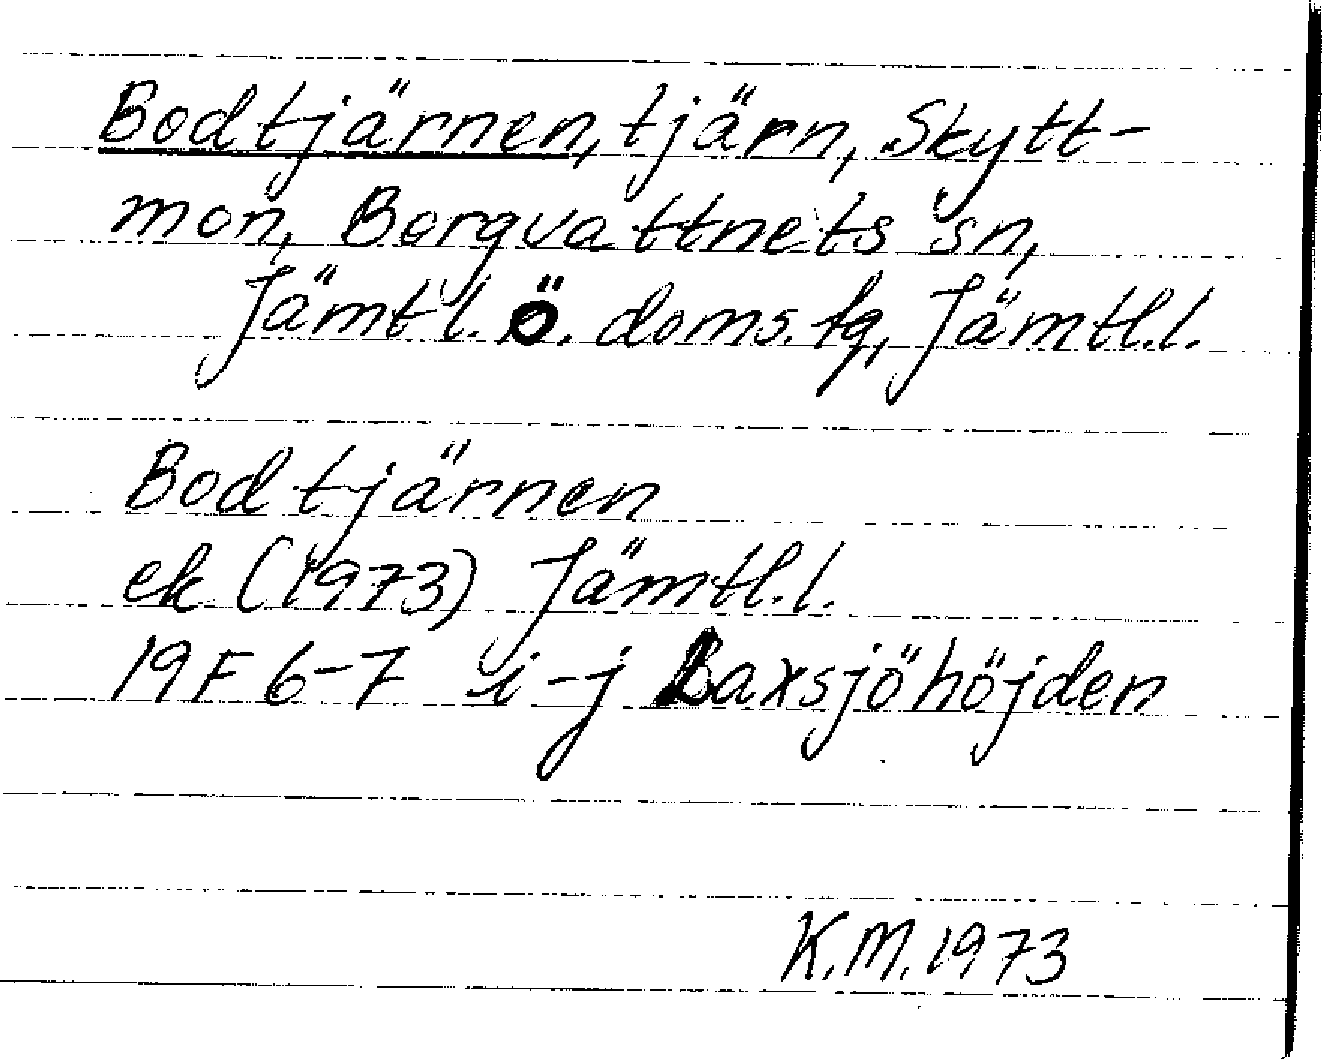 Bodtjärnen, tjärn, Skytt-
mon, Borgvattnets sn,
Jämtl. Ö. doms. tg, Jämtl.l.
Bodtjärnen
ek (1973) Jämtl.l.
19F 6-7 i-j Laxsjöhöjden
K.M. 1973